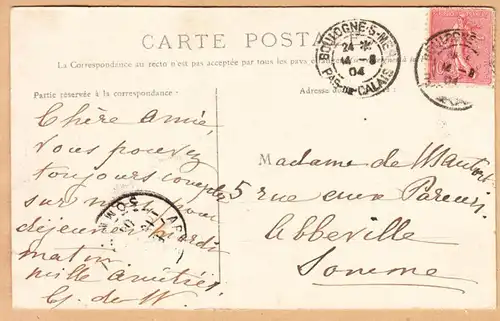 CARTE POSTALE
La Correspondance au recto n'est pas acceptée par tous les pays
Partie réservée à la correspondance:
Adresse du
BOULOGNE-S-MER
24 *
14 -8
04
PAS-DE-CALAIS
14 -8
04
Chère amie,
Vous pouvez
toujours compter
sur moi pour
déjeuner mardi
matin
mille amitiés
Madame de
5 rue aux Pareurs
Abbeville
Somme